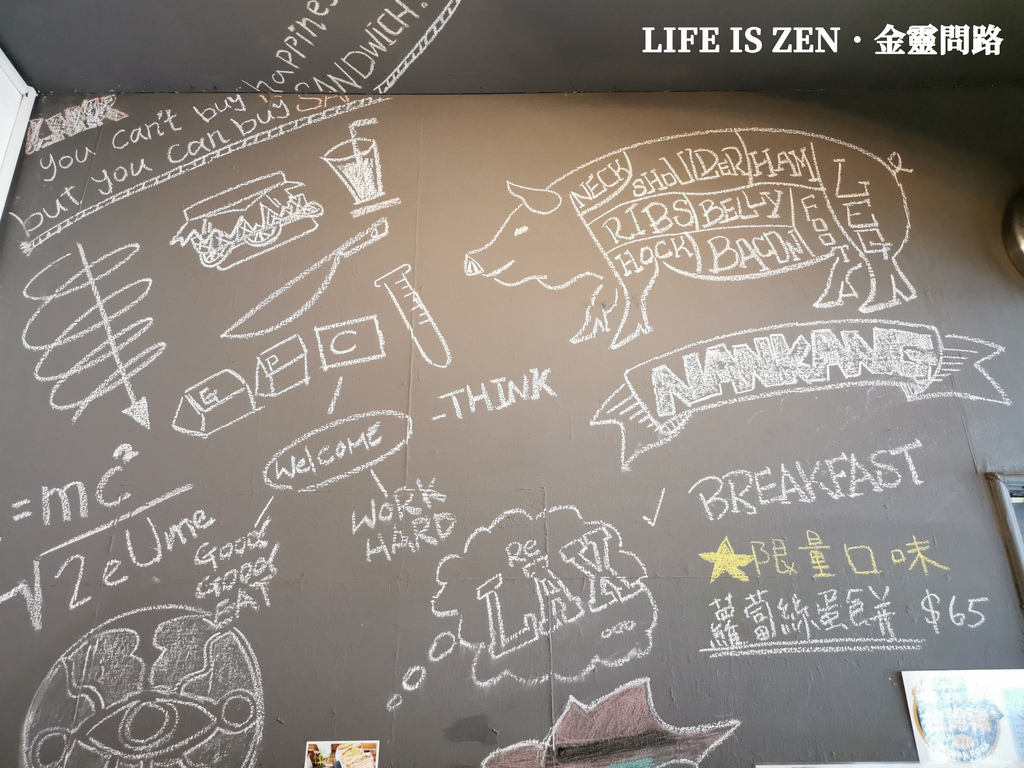 LIFE IS ZEN · 金靈問路
you can't buy happiness
but you can buy SANDWICH.
NECK
SHOULDER
HAM
LEG
RIBS
BELLY
FOOT
HOCK
BACON
NANKANG
G
P
C
-THINK
WELCOME
WORK
HARD
=mc²
√2eUme
GOOD
GOOD
EAT
Re
LAX
...
✓ BREAKFAST
★限量口味
蘿蔔絲蛋餅 $65